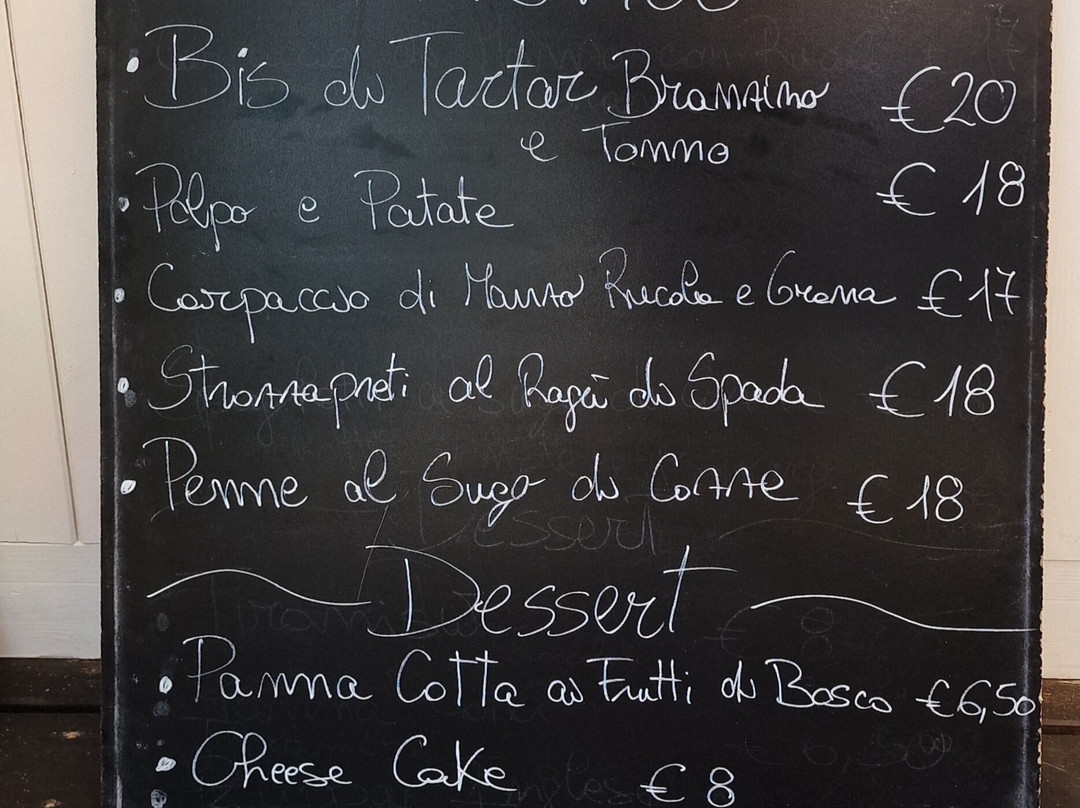 • Bis di Tartar Branzino €20
e Tonno
• Polpo e Patate € 18
• Carpaccio di Manzo Rucola e Grana €17
• Strozzapreti al Ragù di Spada €18
• Penne al Sugo di Cozze €18
Dessert
• Panna Cotta ai Frutti di Bosco €6,50
• Cheese Cake € 8